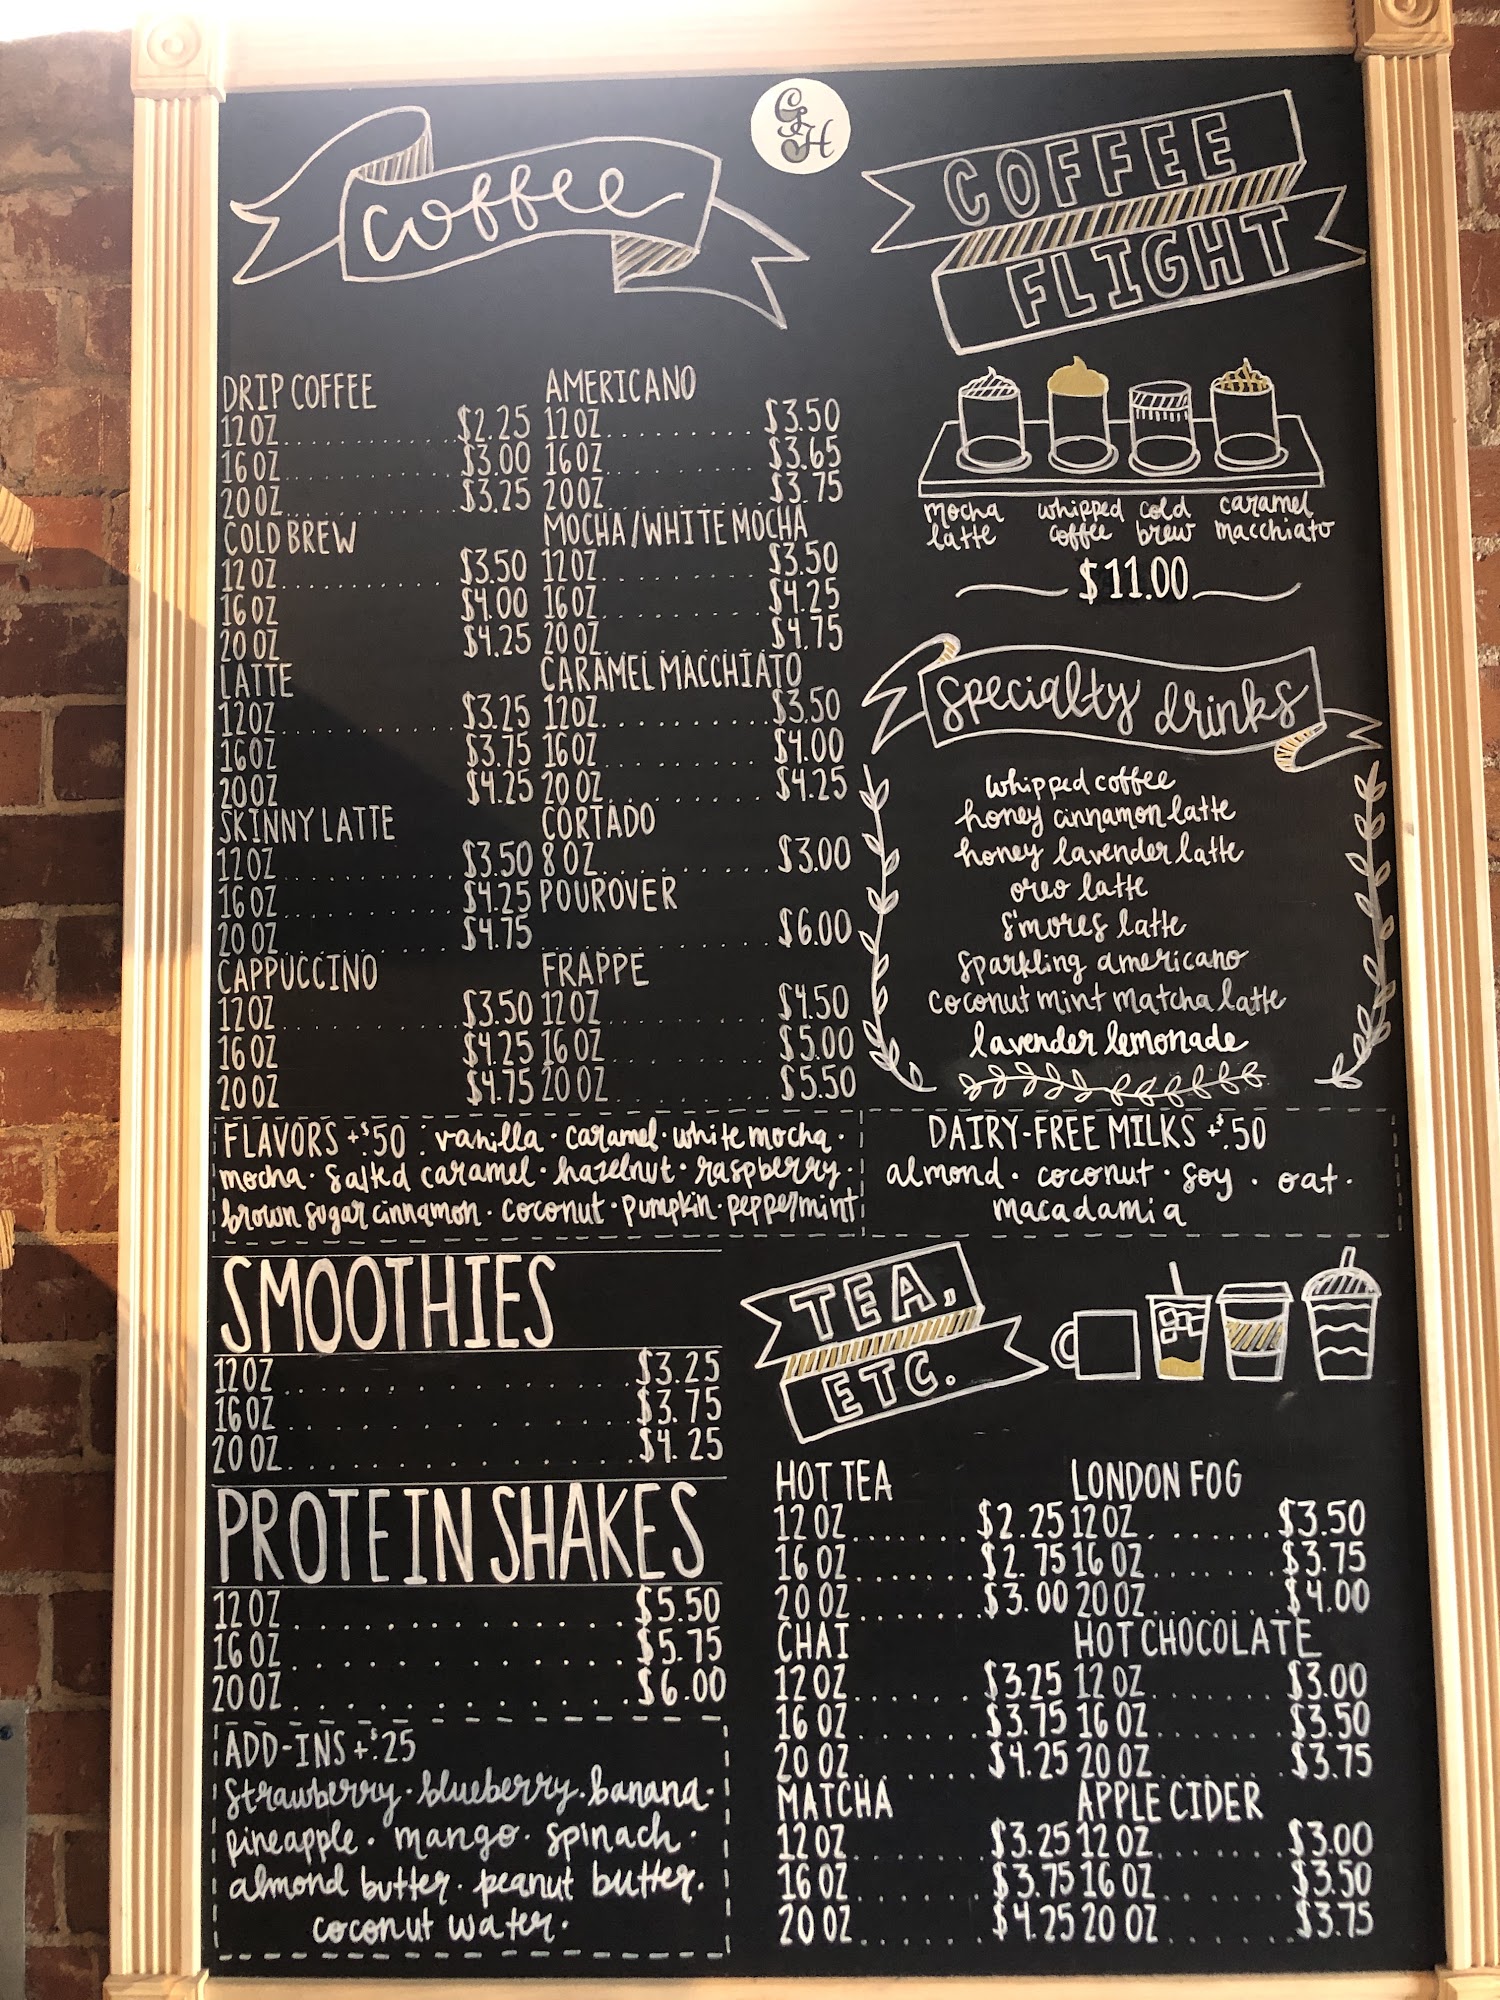 GH
coffee
DRIP COFFEE
12 OZ.................$2.25
16 OZ.................$3.00
20 OZ.................$3.25
COLD BREW
12 OZ.................$3.50
16 OZ $4.00
20 OZ $4.25
LATTE
12 OZ.................$3.25
16 OZ.................$3.75
20 OZ.................$4.25
SKINNY LATTE
12 OZ.................$3.50
16 OZ.................$4.25
20 OZ.................$4.75
CAPPUCCINO
12 OZ.................$3.50
16 OZ $4.25
20 OZ $4.75
AMERICANO
12 OZ.................$3.50
16 OZ.................$3.65
20 OZ.................$3.75
MOCHA/WHITE MOCHA
12 OZ.................$3.50
16 OZ.................$4.25
20 OZ.................$4.75
CARAMEL MACCHIATO
12 OZ.................$3.50
16 OZ.................$4.00
20 OZ.................$4.25
CORTADO
8 OZ.................$3.00
POUROVER
.................$6.00
FRAPPE
12 OZ.................$4.50
16 OZ.................$5.00
20 OZ.................$5.50
COFFEE
FLIGHT
mocha latte
whipped coffee
cold brew
caramel macchiato
$11.00
specialty drinks
whipped coffee
honey cinnamon latte
honey lavender latte
oreo latte
s'mores latte
sparkling americano
coconut mint matcha latte
lavender lemonade
FLAVORS +$.50 : vanilla · caramel · white mocha ·
mocha · salted caramel · hazelnut · raspberry ·
brown sugar cinnamon · coconut · pumpkin · peppermint
DAIRY-FREE MILKS +$.50
almond · coconut · soy · oat ·
macadamia
SMOOTHIES
12 OZ.................$3.25
16 OZ.................$3.75
20 OZ.................$4.25
PROTEIN SHAKES
12 OZ.................$5.50
16 OZ.................$5.75
20 OZ.................$6.00
ADD-INS +$.25
strawberry · blueberry · banana ·
pineapple · mango · spinach ·
almond butter · peanut butter ·
coconut water ·
TEA,
ETC.
HOT TEA
12 OZ.......$2.25
16 OZ.......$2.75
20 OZ.......$3.00
CHAI
12 OZ.......$3.25
16 OZ.......$3.75
20 OZ.......$4.25
MATCHA
12 OZ.......$3.25
16 OZ.......$3.75
20 OZ.......$4.25
LONDON FOG
12 OZ.......$3.50
16 OZ.......$3.75
20 OZ.......$4.00
HOT CHOCOLATE
12 OZ.......$3.00
16 OZ.......$3.50
20 OZ.......$3.75
APPLE CIDER
12 OZ.......$3.00
16 OZ.......$3.50
20 OZ.......$3.75